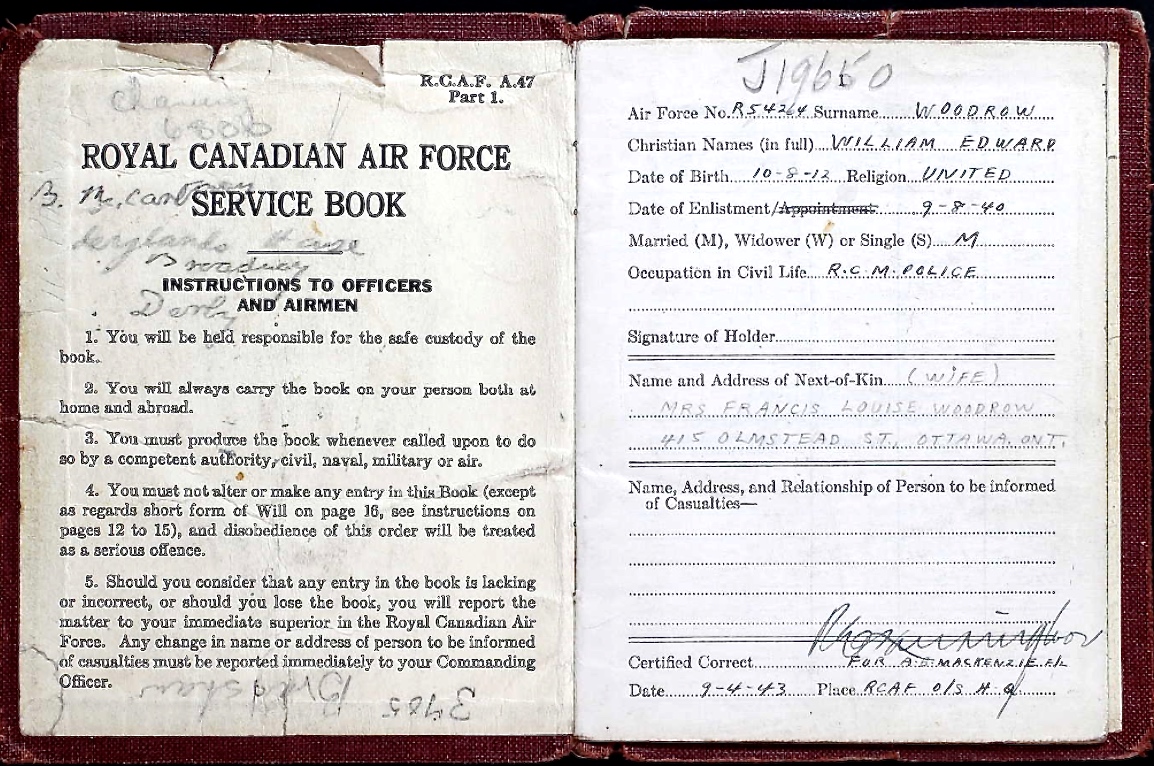 R.C.A.F. A.47
Part 1.
6886
ROYAL CANADIAN AIR FORCE
B.
SERVICE BOOK
House
Broadway
INSTRUCTIONS TO OFFICERS
Derby
AND AIRMEN
1. You will be held responsible for the safe custody of the
book.
2. You will always carry the book on your person both at
home and abroad.
3. You must produce the book whenever called upon to do
so by a competent authority, civil, naval, military or air.
4. You must not alter or make any entry in this Book (except
as regards short form of Will on page 16, see instructions on
pages 12 to 15), and disobedience of this order will be treated
as a serious offence.
5. Should you consider that any entry in the book is lacking
or incorrect, or should you lose the book, you will report the
matter to your immediate superior in the Royal Canadian Air
Force. Any change in name or address of person to be informed
of casualties must be reported immediately to your Commanding
Officer.
J19650
1
Air Force No. R54264 Surname WOODROW
Christian Names (in full) WILLIAM EDWARD
Date of Birth 10-8-12 Religion UNITED
Date of Enlistment/Appointment 9-8-40
Married (M), Widower (W) or Single (S) M
Occupation in Civil Life R.C.M.POLICE
Signature of Holder
Name and Address of Next-of-Kin (WIFE)
MRS FRANCIS LOUISE WOODROW
415 OLMSTEAD ST., OTTAWA. ONT.
Name, Address, and Relationship of Person to be informed
of Casualties—
Certified Correct FOR A.E. MACKENZIE F/L
Date 9-4-43 Place RCAF O/S H.Q.